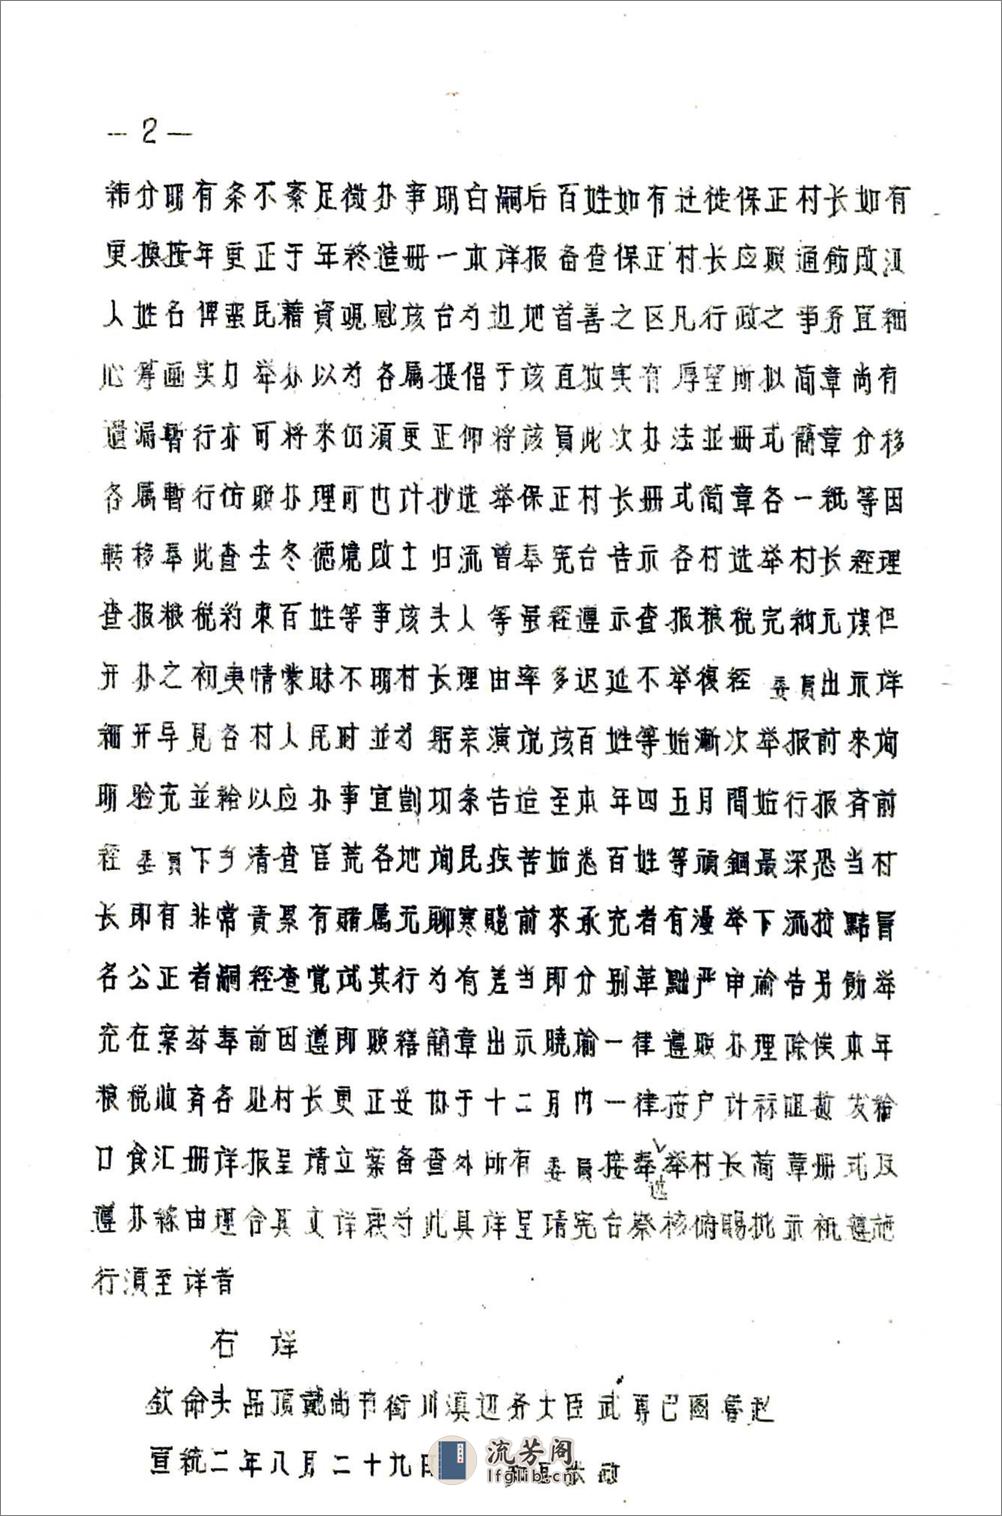 —2—
祎分明有条不紊足徵办事明白嗣后百姓如有迁徙保正村长如有
更换按年更正于年终造册一本详报备查保正村长应照通飭改汉
人姓名俾蛮民藉資观感该台为边地首善之区凡行政之事务宜细
心筹画实力举办以为各属提倡于该直牧实有厚望所拟简章尚有
遗漏暫行亦可将来仍須更正仰将该員此次办法並册式簡章分移
各属暫行仿照办理可也计抄选举保正村长册式简章各一紙等因
轉移奉此查去冬德境改土归流曾奉宪台告示各村选举村长經理
查报粮税約束百姓等事该头人等虽經遵示查报粮税完納无误但
开办之初夷情蒙昧不明村长理由率多迟延不举復經委員出示详
細开导見各村人民时並为親亲演说该百姓等始漸次举报前来询
明验充並給以应办事宜割切条告迨至本年四五月間始行报斉前
經委員下乡清查官荒各地询民疾苦始悉百姓等頑錮最深恐当村
长即有非常責累有赌属无聊寒賤前来承充者有漫举下流狡黠冒
名公正者嗣經查覚或其行为有差当即分别革黜严申谕告另飭举
充在案茲奉前因遵即照缮簡章出示晓谕一律遵照办理除俟本年
粮税收斉各处村长更正妥协于十二月内一律按户计 发給
口食汇册详报呈请立案备查外所有委員接奉选举村长简章册式及
遵办缘由理合具文详覆为此具详呈请宪台察核俯賜批示祇遵施
行須至详者
右详
欽命头品頂戴尚书衔川滇边务大臣武勇巴圖魯赵
宣統二年八月二十九日
流芳阁
lfglib.cn